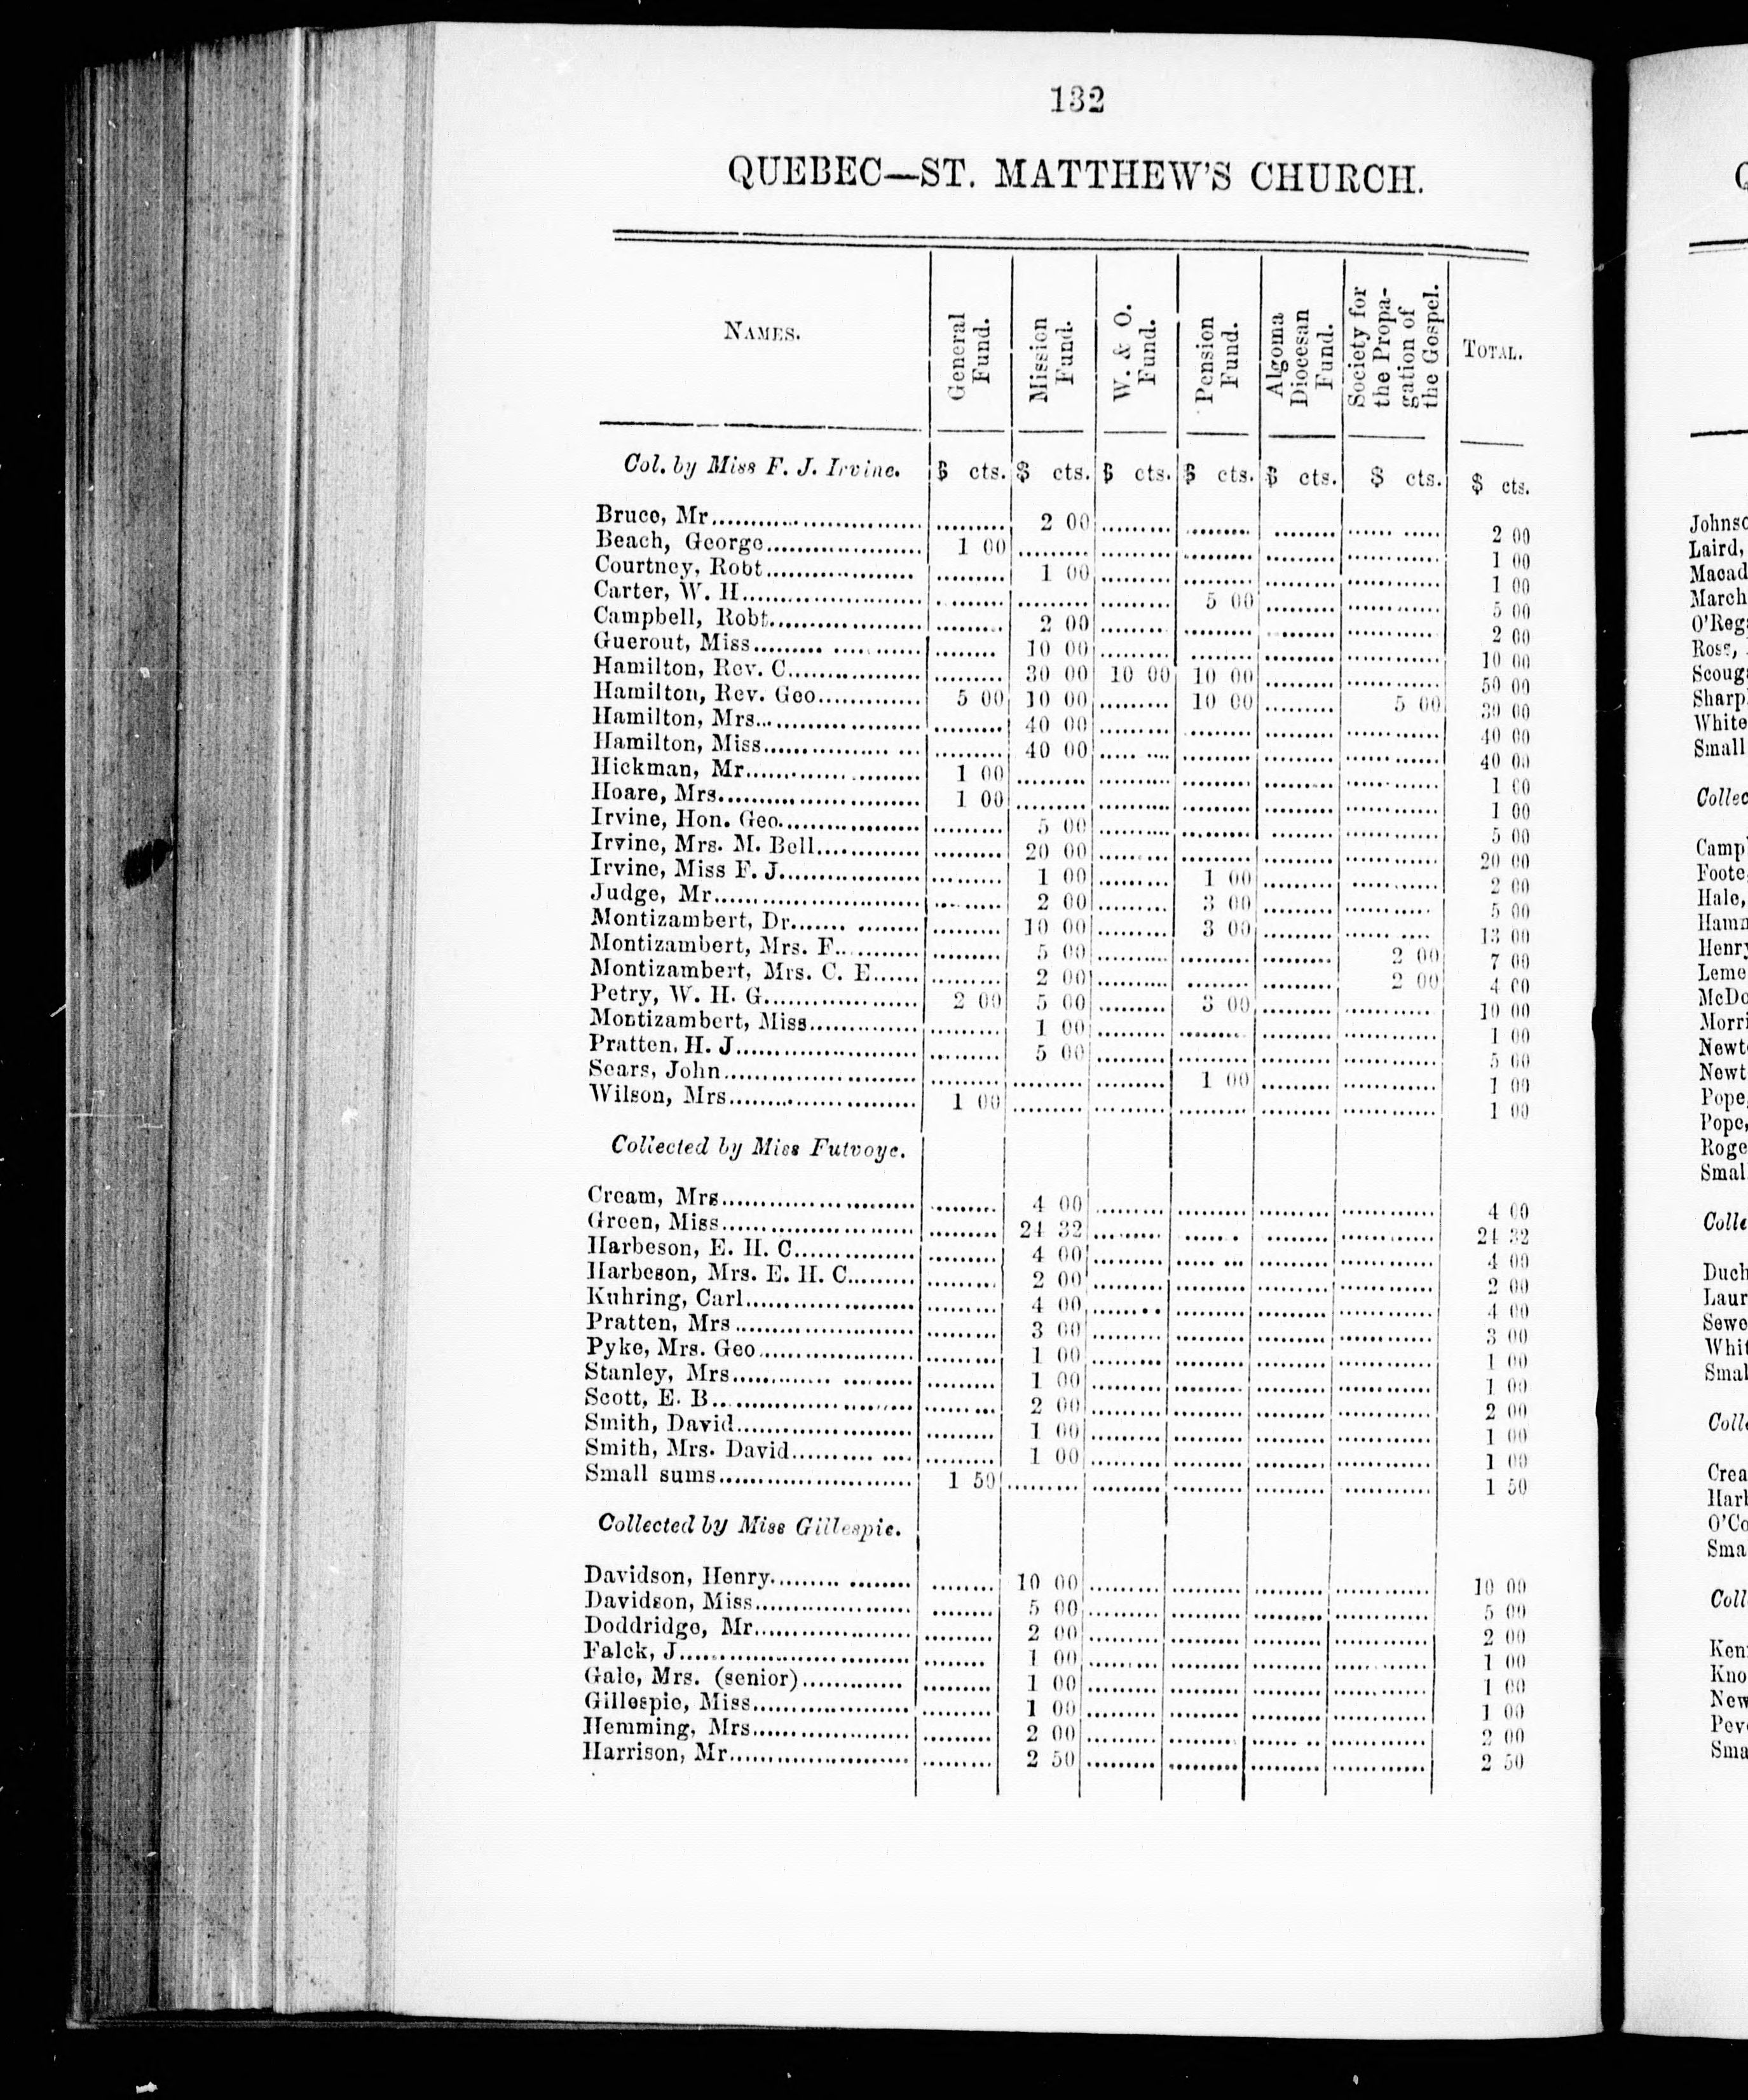 132
QUEBEC—ST. MATTHEW'S CHURCH.
NAMES. General Fund. Mission Fund. W. & O. Fund. Pension Fund. Algoma Diocesan Fund. Society for the Propagation of the Gospel. TOTAL.
Col. by Miss F. J. Irvine. $ cts. $ cts. $ cts. $ cts. $ cts. $ cts. $ cts.
Bruce, Mr 2 00 2 00
Beach, George 1 00 1 00
Courtney, Robt 1 00 1 00
Carter, W. H 5 00 5 00
Campbell, Robt 2 00 2 00
Guerout, Miss 10 00 10 00
Hamilton, Rev. C 30 00 10 00 10 00 50 00
Hamilton, Rev. Geo 5 00 10 00 10 00 5 00 30 00
Hamilton, Mrs 40 00 40 00
Hamilton, Miss 40 00 40 00
Hickman, Mr 1 00 1 00
Hoare, Mrs 1 00 1 00
Irvine, Hon. Geo 5 00 5 00
Irvine, Mrs. M. Bell 20 00 20 00
Irvine, Miss F. J 1 00 1 00 2 00
Judge, Mr 2 00 3 00 5 00
Montizambert, Dr 10 00 3 00 13 00
Montizambert, Mrs. F 5 00 2 00 7 00
Montizambert, Mrs. C. E 2 00 2 00 4 00
Petry, W. H. G 2 00 5 00 3 00 10 00
Montizambert, Miss 1 00 1 00
Pratten, H. J 5 00 5 00
Sears, John 1 00 1 00
Wilson, Mrs 1 00 1 00
Collected by Miss Futvoye.
Cream, Mrs 4 00 4 00
Green, Miss 24 32 24 32
Harbeson, E. H. C 4 00 4 00
Harbeson, Mrs. E. H. C 2 00 2 00
Kuhring, Carl 4 00 4 00
Pratten, Mrs 3 00 3 00
Pyke, Mrs. Geo 1 00 1 00
Stanley, Mrs 1 00 1 00
Scott, E. B 2 00 2 00
Smith, David 1 00 1 00
Smith, Mrs. David 1 00 1 00
Small sums 1 50 1 50
Collected by Miss Gillespie.
Davidson, Henry 10 00 10 00
Davidson, Miss 5 00 5 00
Doddridge, Mr 2 00 2 00
Falck, J 1 00 1 00
Gale, Mrs. (senior) 1 00 1 00
Gillespie, Miss 1 00 1 00
Hemming, Mrs 2 00 2 00
Harrison, Mr 2 50 2 50
Laird,
Ross,
White
Small
Foote
Hale,
Henry
Pope,
Pope,